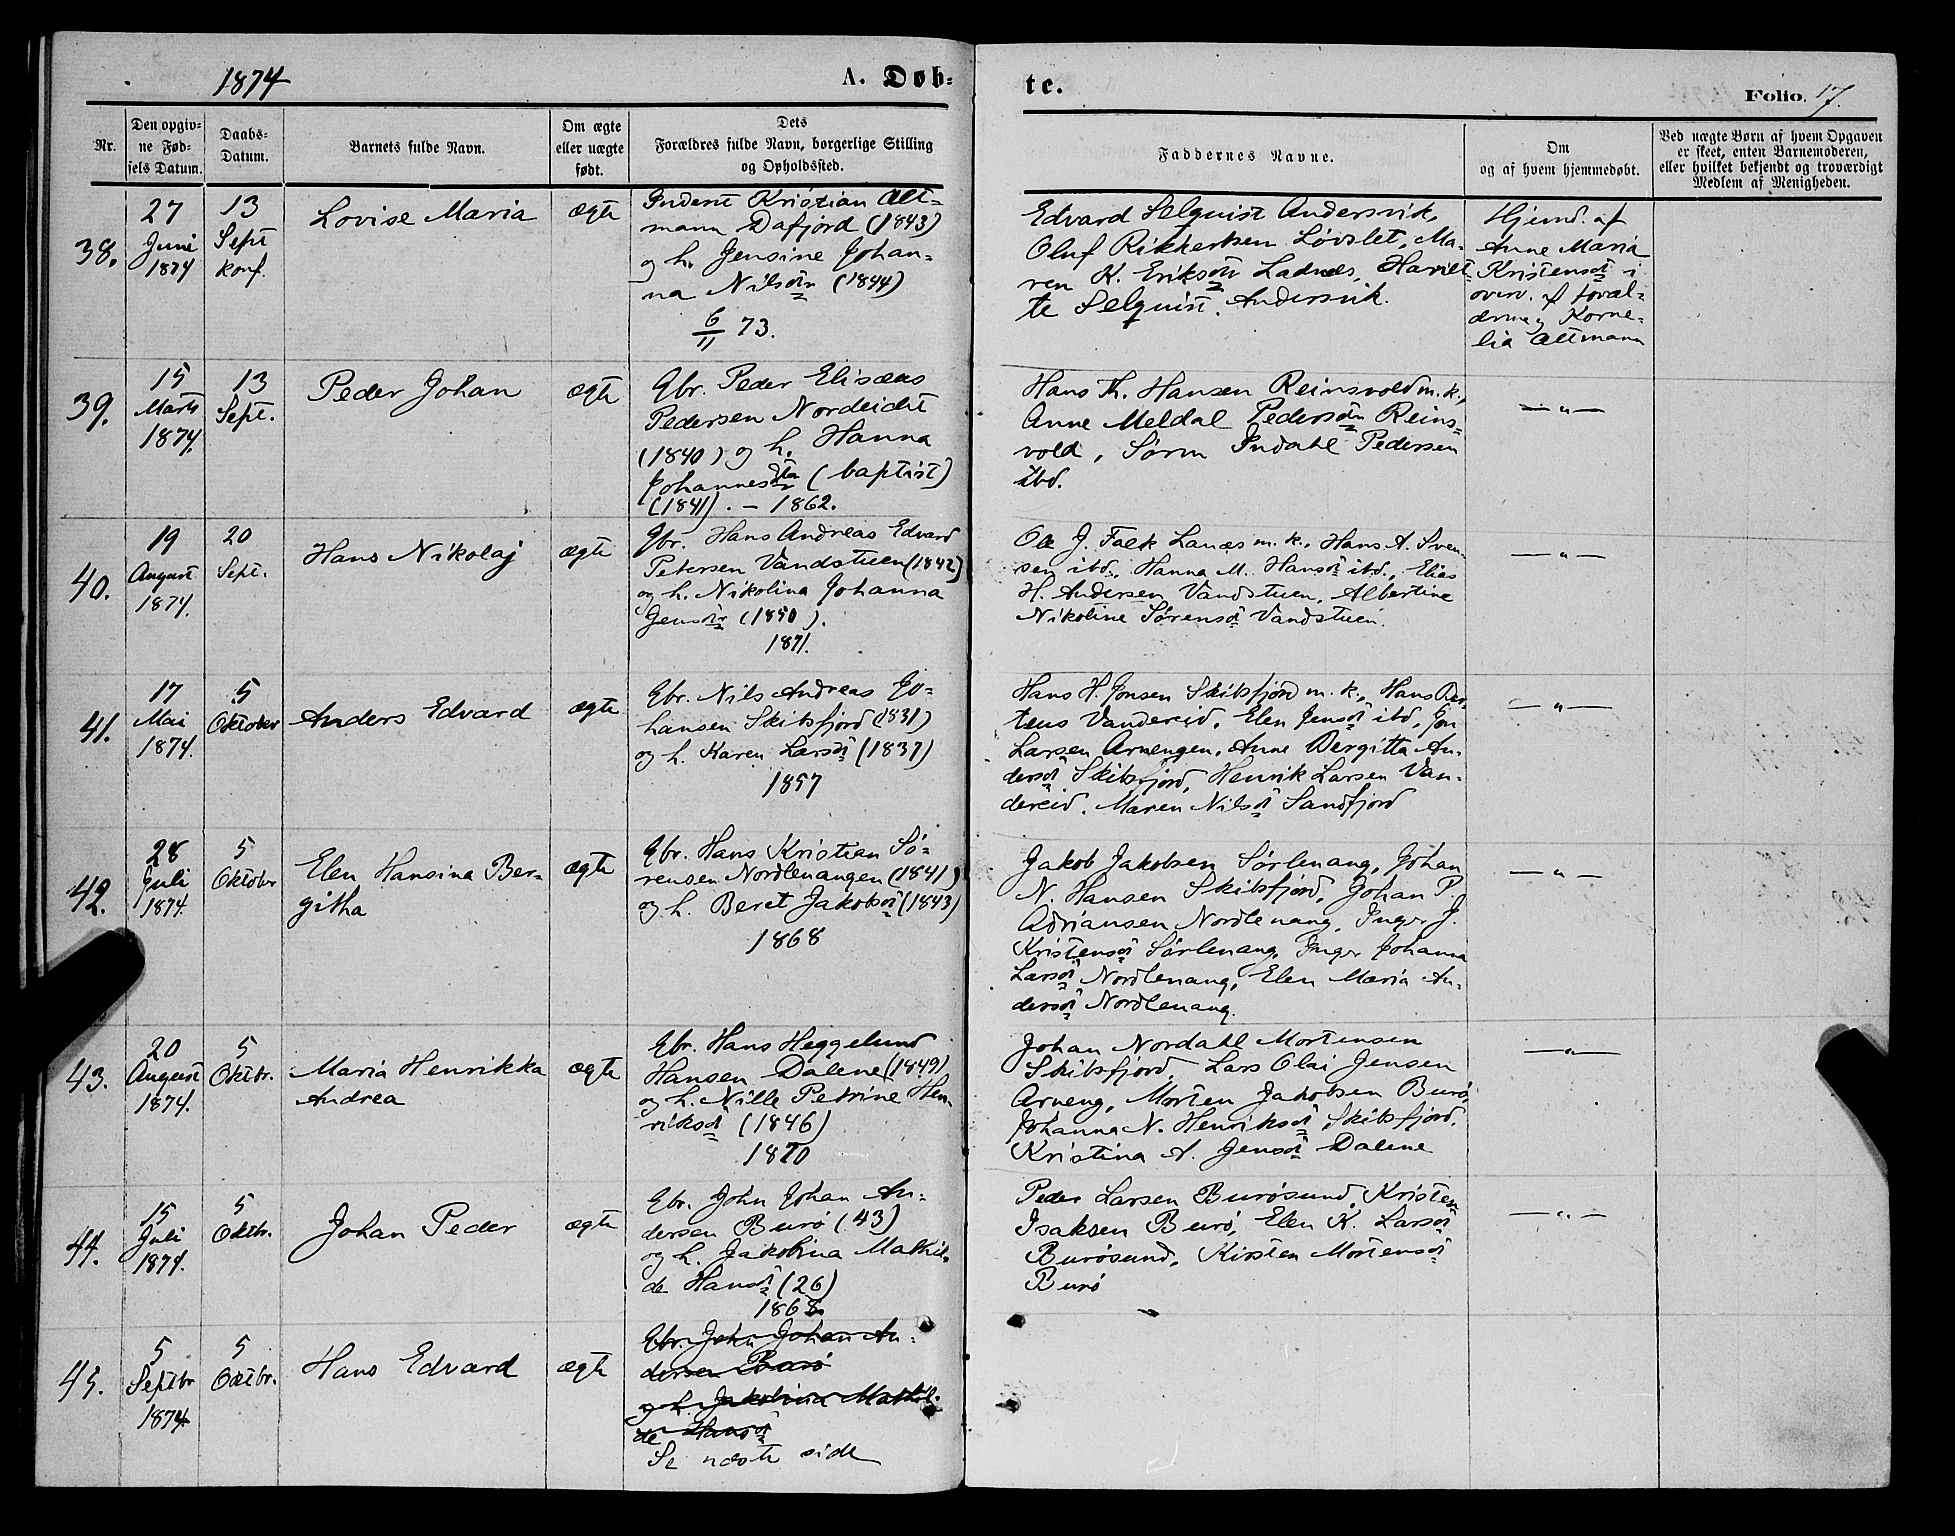 1874
A. Døb-
te.
Folio. 17.
Nr.
Den opgiv-
ne Fød-
sels Datum.
Daabs-
Datum.
Barnets fulde Navn.
Om ægte
eller uægte
født.
Dets
Forældres fulde Navn, borgerlige Stilling
og Opholdssted.
Faddernes Navne.
Om
og af hvem hjemmedøbt.
Ved uægte Børn af hvem Opgaven
er skeet, enten Barnemoderen,
eller hvilket bekjendt og troværdigt
Medlem af Menigheden.
38.
27
Juni
1874
13
Sept
konf.
Lovise Maria
ægte
Inderst Kristian Alt-
mann Dafjord (1843)
og h. Jensine Johan-
na Nilsdtr (1844)
6/11 73.
Edvard Selquist Andersvik,
Oluf Rikkertsen Løvslet, Ma-
ren K. Eriksdtr Ladnes, Hariet-
te Selquist Andersvik.
Hjemd. af
Anne Maria
Kristensdtr i
overv. af foræl-
drene og Korne-
lia Altmann
39.
15
Marts
1874.
13
Sept.
Peder Johan
ægte
Gbr. Peder Elisæus
Pedersen Nordeidet
(1840) og h. Hanna
Johannesdtr (baptist)
(1841). – 1862.
Hans Th. Hansen Reinsvold m. k.,
Anne Meldal Pedersdtr Reins-
vold, Sørm Indahl Pedersen
ibd.
— „ —
40.
19
August
1874.
20
Sept.
Hans Nikolaj
ægte
Gbr. Hans Andreas Edvard
Petersen Vandstuen (1842)
og h. Nikolina Johanna
Jensdtr (1850).
1871.
Ole J. Falk Lanæs m. k., Hans A. Sven-
sen ibd., Hanna M. Hansdtr ibd., Elias
H. Andersen Vandstuen, Albertine
Nikoline Sørensdtr Vandstuen.
— „ —
41.
17
Mai
1874.
5
Oktober
Anders Edvard
ægte
Gbr. Nils Andreas Jo-
hansen Skibsfjord (1831)
og h. Karen Larsdtr (1837)
1857
Hans H. Jonsen Skibsfjord m. k., Hans Ber-
tens Vandereid, Elen Jensdtr ibd, Jon
Larsen Arnengen, Anne Bergitta An-
dersdtr Skibsfjord, Henrik Larsen Van-
dereid, Maren Nilsdtr Sandfjord
— „ —
42.
28
Juli
1874.
5
Oktober
Elen Hansina Ber-
githa
ægte
Gbr. Hans Kristian Sø-
rensen Nordlenangen (1841)
og h. Beret Jakobsdtr (1843)
1868
Jakob Jakobsen Sørlenang, Johan
N. Hansen Skibsfjord, Johan P.
Adriansen Nordlenang, Inger J.
Kristensdtr Sørlenang, Inger Johanna
Larsdtr Nordlenang, Elen Maria An-
dersdtr Nordlenang.
— „ —
43.
20
August
1874.
5
Oktbr.
Maria Henrikka
Andrea
ægte
Gbr. Hans Heggelund
Hansen Dalene (1849)
og h. Nille Petrine Hen-
riksdtr (1846)
1870
Johan Nordahl Mortensen
Skibsfjord, Lars Olai Jensen
Arneng, Morten Jakobsen Burø,
Johanna N. Henriksdtr Skibsfjord,
Kristina A. Jensdtr Dalene
— „ —
44.
15
Juli
1874.
5
Oktbr.
Johan Peder
ægte
Gbr. John Johan An-
dersen Burø (43)
og h. Jakobina Mathil-
de Hansdtr (26)
1868
Peder Larsen Burøsund, Kristen
Isaksen Burø, Elen K. Larsdtr
Burøsund, Kirsten Mortensdtr
Burø
— „ —
45.
5
Septbr
1874
5
Octbr.
Hans Edvard
ægte
Gbr. John Johan An-
dersen Burø
og h. Jakobina Mathil-
de Hansdtr
Se næste side